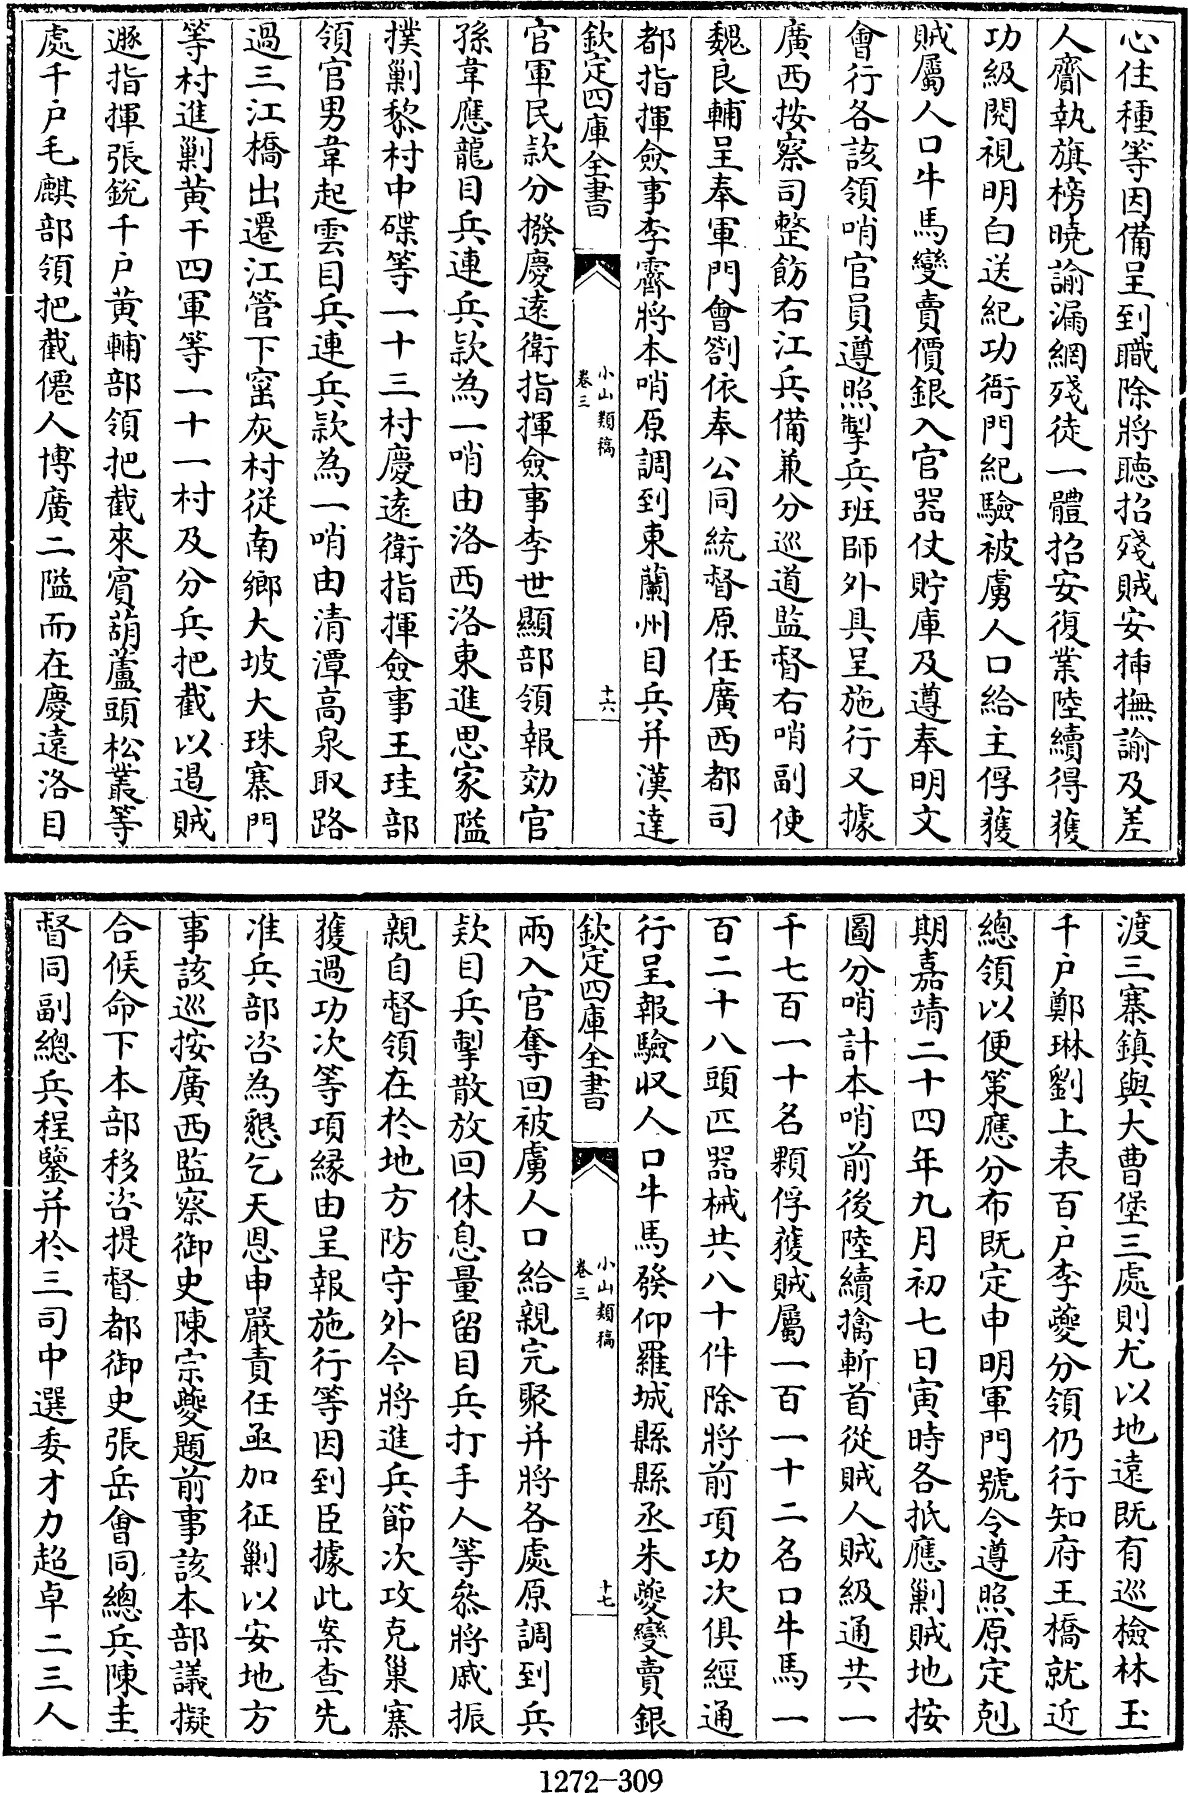 心住種等因備呈到職除將聽招殘賊安揷撫諭及差
人齎執旗榜曉諭漏網殘徒一體招安復業陸續得獲
功級閱視明白送紀功衙門紀驗被虜人口給主俘獲
賊屬人口牛馬變賣價銀入官器仗貯庫及遵奉明文
會行各該領哨官員遵照掣兵班師外具呈施行又據
廣西按察司整飭右江兵備兼分巡道監督右哨副使
魏良輔呈奉軍門會劄依奉公同統督原任廣西都司
都指揮僉事李霽將本哨原調到東蘭州目兵并漢達
欽定四庫全書
小山類稿
卷三
十六
官軍民款分撥慶遠衛指揮僉事李世顯部領報効官
孫韋應龍目兵連兵款為一哨由洛西洛東進思家隘
撲剿黎村中碟等一十三村慶遠衛指揮僉事王珪部
領官男韋起雲目兵連兵款為一哨由清潭高泉取路
過三江橋出遷江管下窑灰村從南鄉大坡大珠寨門
等村進剿黃干四軍等一十一村及分兵把截以遏賊
遯指揮張銳千戶黃輔部領把截來賓葫蘆頭松叢等
處千戶毛麒部領把截僊人博廣二隘而在慶遠洛目
渡三寨鎮與大曹堡三處則尤以地遠既有巡檢林玉
千戶鄭琳劉上表百戶李夔分領仍行知府王橋就近
總領以便策應分布既定申明軍門號令遵照原定剋
期嘉靖二十四年九月初七日寅時各抵應剿賊地按
圖分哨計本哨前後陸續擒斬首從賊人賊級通共一
千七百一十名顆俘獲賊屬一百一十二名口牛馬一
百二十八頭匹器械共八十件除將前項功次俱經通
行呈報驗收人口牛馬發仰羅城縣縣丞朱夔變賣銀
欽定四庫全書
小山類稿
卷三
十七
兩入官奪回被虜人口給親完聚并將各處原調到兵
款目兵掣散放回休息量留目兵打手人等叅將戚振
親自督領在於地方防守外今將進兵節次攻克巢寨
獲過功次等項緣由呈報施行等因到臣據此案查先
准兵部咨為懇乞天恩申嚴責任亟加征剿以安地方
事該巡按廣西監察御史陳宗夔題前事該本部議擬
合候命下本部移咨提督都御史張岳會同總兵陳圭
督同副總兵程鑒并於三司中選委才力超卓二三人
1272-309